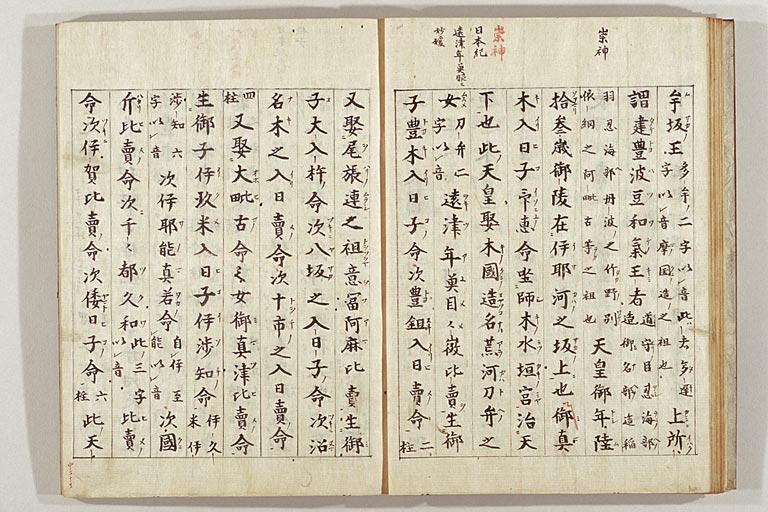 崇神
崇神
日本紀
遠津年魚眼
妙媛
牟坂王 多牟二字以音此者多遅摩国造之祖也 上所
謂建豊波豆和氣王者 道守臣忍海部造御名部造稲
羽忍海部丹波之竹野別依網之阿毗古等之祖也 天皇御年陸
拾叁歳御陵在伊耶河之坂上也御真
木入日子印恵命坐師木水垣宮治天
下也此天皇娶木國造名荒河刀弁之
女 刀弁二字以音 遠津年魚目々微比賣生御
子豊木入日子命次豊鉏入日賣命 二柱
又娶尾張連之祖意冨阿麻比賣生御
子大入杵命次八坂之入日子命次沼
名木之入日賣命次十市之入日賣命
四柱 又娶大毗古命之女御真津比賣命
生御子伊玖米入日子伊渉知命 伊久米伊
渉知六字以音 次伊耶能真若命 自伊至能以音 次國
片比賣命次千々都久和 此三字以音 比賣
命次伊賀比賣命次倭日子命 六柱 此天